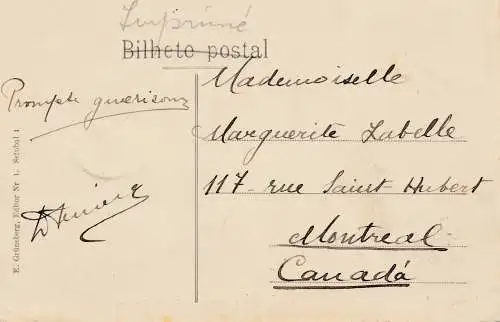 Imprimé
Bilheto postal
Prompte guerison
Mademoiselle
Marguerite Labelle
117 - rue Saint-Hubert
Montreal
Canadá
E. Grünsberg, Editor Nr 1. Setubal 1